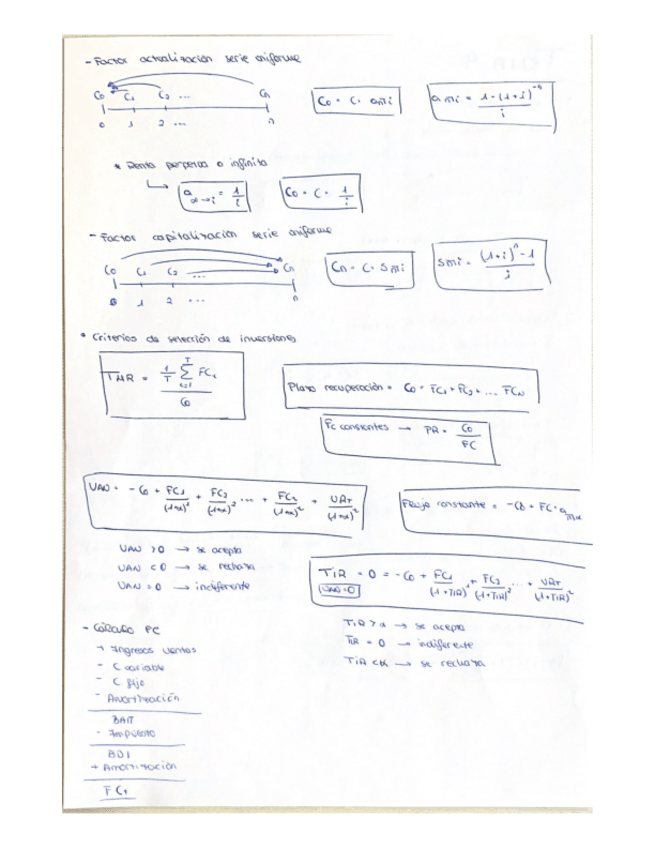 - Factor actualización serie uniforme
Co C1 C2 ... Cn
0 1 2 ... n
Co = C · an̅i
an̅i = 1-(1+i)^-n / i
* Renta perpetua o infinita
a∞→i = 1/i
Co = C · 1/i
- Factor capitalización serie uniforme
Co C1 C2 ... Cn
0 1 2 ... n
Cn = C · Sn̅i
Sn̅i = (1+i)^n - 1 / i
* Criterios de selección de inversiones
= 1/T Σ FCt / Co
Plazo recuperación = Co = FC1 + FC2 + ... FCn
Fc constantes → PR = Co / FC
VAN = - Co + FC1/(1+α)^1 + FC2/(1+α)^2 ... + /(1+α) + VRT/(1+α)
Flujo constante = -Co + FC · an̅α
VAN > 0 → se acepta
VAN < 0 → se rechaza
VAN = 0 → indiferente
TIR → 0 = - Co + FC1/(1+TIR)^1 + FC2/(1+TIR)^2 ... + VRT/(1+TIR)
VAN=0
TIR > α → se acepta
TIR = 0 → indiferente
TIR < α → se rechaza
- Cálculo FC
+ Ingresos ventas
- C variable
- C fijo
- Amortización
BAIT
- Impuesto
BDI
+ Amortización
FCt